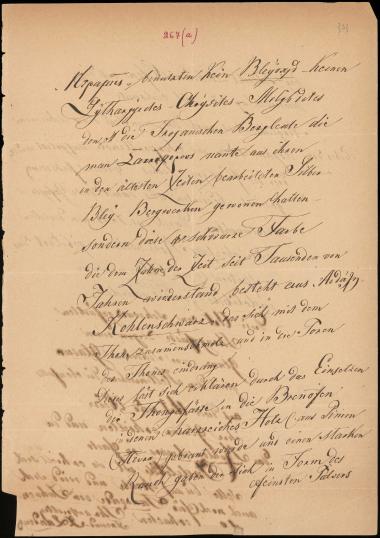 267(a)
benutzten kein Bleÿoxyd keinen
Lÿthargÿites - Chrÿsites - Molÿbdites
den die Trojanischen Bergleute die
man nante aus ihren
in den ältesten Zeiten bearbeiteten Silber
Bleÿ Bergwerken gewonen hatten
sondern diese schwarze Farbe
die dem der Zeit seit Tausenden von
Jahren wiederstand besteht aus
Kohlenschwärz der sich mit dem
Thon zusamenschmolz und in die Poren
des Thones eindrang
dieses läst sich erklären durch das Einsetzen
der Thongefäße in die Brenöfen
in denen harzreiches Holz (aus Pinien
) gebrant wurde und einen starken
Rauch gaben der sich in Form des
feinsten Pulvers